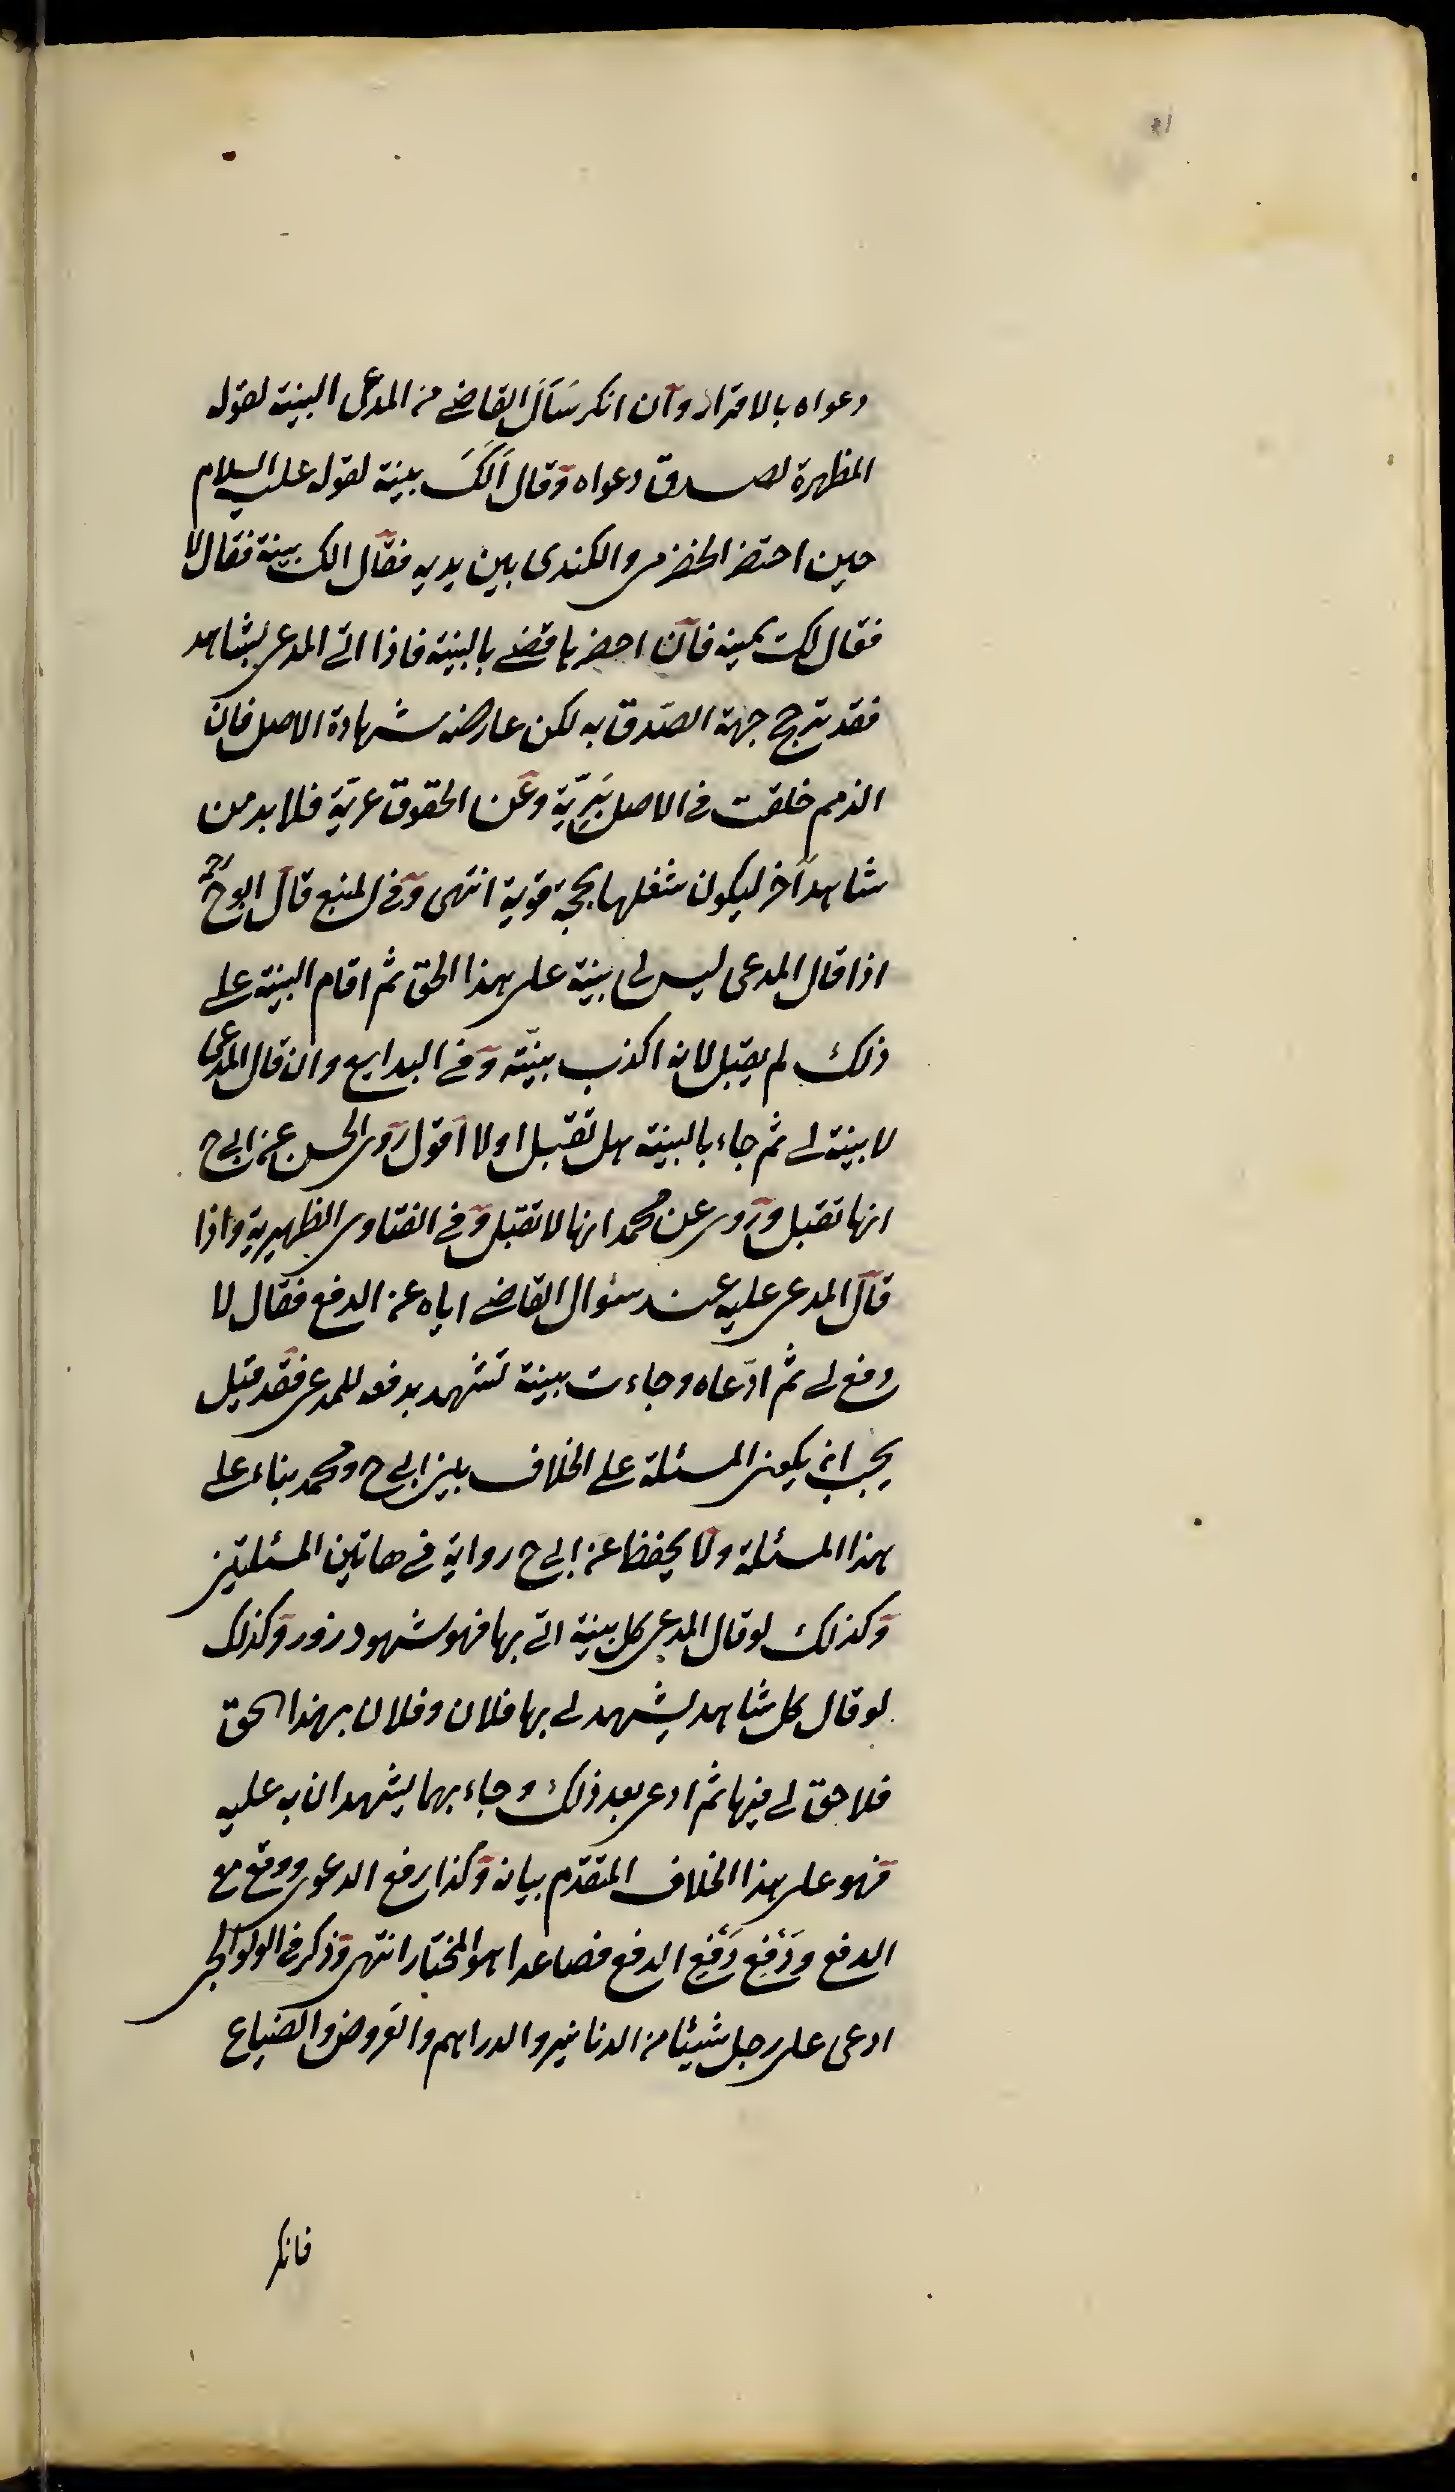 دعواه بالاقرار وان انكر سَأَلَ القاضي من المدعى البينة لقوله
المظهرة لصدق دعواه وقال اَلَكَ بينة لقوله عليه السلام
حين احتضر الحضرمى والكندى بين يديه فقال الك بينة فقال لا
فقال لك يمينه فان احضرها قضى بالبينة فاذا اتى المدعى بشاهد
فقد ترجح جهة الصّدق به لكن عارضه شهادة الاصل فان
الذمم خلقت في الاصل بَرِيّة وعن الحقوق عريّة فلا بد من
شاهد آخر ليكون شغلها بحجة قوية انتهى وفي المنبع قال ابو ح رح
اذا قال المدعى ليس لى بينة على هذا الحق ثم اقام البينة على
ذلك لم يقبل لانه اكذب بينته وفي البدايع وان قال المدعى
لا بينة لي ثم جاء بالبينة هل تقبل او لا اقول روى الحسن عن ابي ح
انها تقبل وروى عن محمد انها لا تقبل وفي الفتاوى الظهيرية واذا
قال المدعى عليه عند سئوال القاضي اياه عن الدفع فقال لا
دفع لي ثم ادّعاه وجاءت بينة تشهد بدفعه للمدعى فقد قيل
يجب ان يكون المسئلة على الخلاف بين ابي ح ومحمد بناء على
هذا المسئلة ولا يحفظ عن ابي ح رواية في هاتين المسئلتين
وكذلك لو قال المدعى كل بينة اتى بها فهو شهود زور وكذلك
لو قال كل شاهد يشهد لي بها فلان وفلان بهذا الحق
فلا حق لي فيها ثم ادعى بعد ذلك وجاء بهما يشهدان به عليه
فهو على هذا الخلاف المتقدم بيانه وكذا رفع الدعوى ووقع مع
الدفع ودَفْع دَفْع الدفع فصاعدا هو المختار انتهى وذكر في الولوالجى
ادعى على رجل شيئا من الدنانير والدراهم والعروض والضياع
فانكر